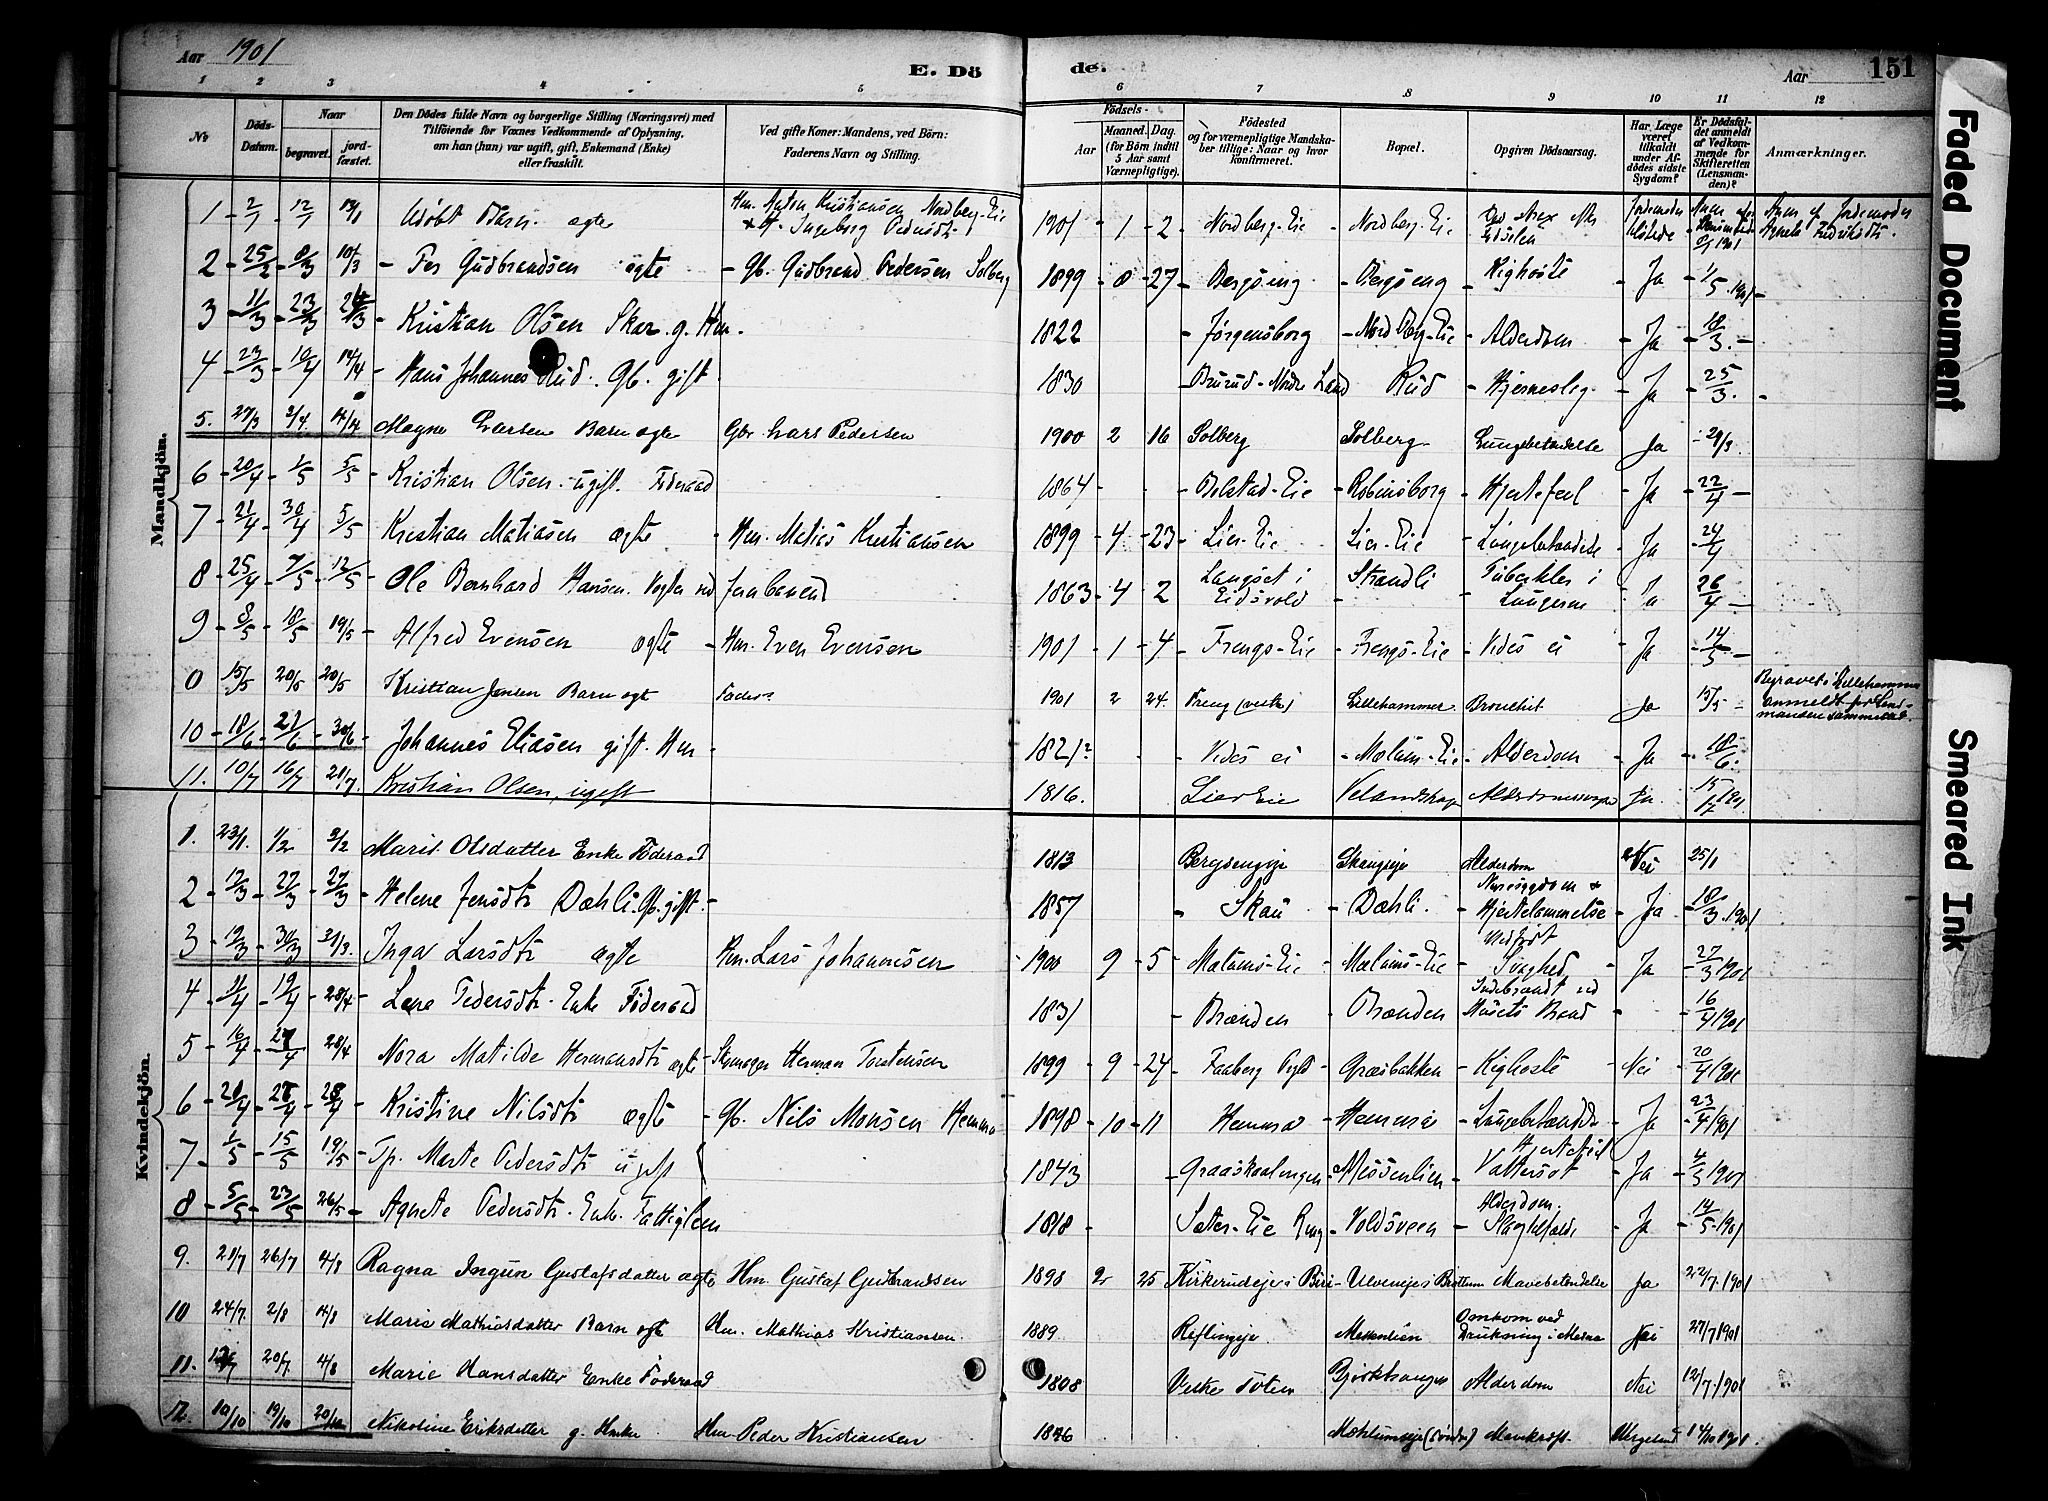 Aar 1901
E. Dö
de.
Aar
151
1 2 3 4 5 6 7 8 9 10 11 12
No
Döds-Datum.
Naar
begravet. jord-fæstet.
Den Dödes fulde Navn og borgerlige Stilling (Næringsvei) med
Tilföiende for Voxnes Vedkommende af Oplysning.
om han (hun) var ugift, gift, Enkemand (Enke)
eller fraskilt.
Ved gifte Koner: Mandens, ved Börn:
Faderens Navn og Stilling.
Födsels-
Aar
Maaned. Dag.
(for Börn indtil
5 Aar samt
Værnepligtige).
Födested
og for værnepligtige Mandska-
ber tillige: Naar og hvor
konfirmeret.
Bopæl.
Opgiven Dödsaarsag.
Har Læge
været
tilkaldt
under Af-
dödes sidste
Sygdom?
Er Dödsfal-
det anmeldt
af Vedkom-
mende for
Skifteretten
(Lensman-
den)?
Anmærkninger.
Mandkjön.
1 2/1 12/1 Udøbt Barn ægte Hm. Anton Kristiansen Nordberg-Eie
Ingeborg Pedersdtr. 1901 1 2 Nordberg-Eie Nordberg-Eie
2 25/2 8/3 10/3 Per Gudbrandsen ægte Gb. Gudbrand Pedersen Solberg 1899 8 27 Bergseng Bergseng Kighoste Ja 1/5 1901
3 11/3 23/3 Kristian Olsen Skar. g. Hm. 1822 Jørgensborg Nordberg-Eie Alderdom Ja 18/3
4 23/3 10/4 14/4 Hans Johannes Rud. Gb. gift 1830 Brurud - Nordre Land Rud Hjerneslag Ja 25/3
5. 27/3 2/4 14/4 Magne Larsen Barn ægte Gbr Lars Pedersen 1900 2 16 Solberg Solberg Lungebetændelse Ja 29/3
6 20/4 1/5 5/5 Kristian Olsen ugift. Føderaad 1864 Bolstad-Eie Robinsborg Hjertefeil Ja 22/4
7 21/4 30/4 5/5 Kristian Matiasen ægte Hm. Matias Kristiansen 1899 4 23 Lier-Eie Lier-Eie Lungebetændelse Ja 24/4
8 25/4 7/5 12/5 Ole Bernhard Hansen. Vogter ved Jernbanen 1863 4 2 Langset i
Eidsvold Strandli Tuberkler i
Lungerne Ja 26/4
9 8/5 18/5 19/5 Alfred Evensen ægte Hm. Even Evensen 1901 1 4 Frengs-Eie Frengs-Eie Vides ei Ja 14/5
0 15/5 20/5 20/5 Kristian Jensen Barn ægte 1901 2 24. Freng (vestre) Lillehammer Bronchit Ja 15/5 Begravet i Lillehammer
anmeldt for Lens-
manden sammesteds
10 18/6 27/6 30/6 Johannes Eliasen gift. Hm 1821? Vides ei Mælum-Eie Alderdom Ja 18/6
11. 10/7 16/7 21/7 Kristian Olsen, ugift 1816. Lier Eie Ja. 15/7 1901
Kvindekjön.
1. 23/1 1/2 3/2 Marit Olsdatter Enke Føderaad 1813 Bergsengeje Skougeje Alderdom Nei 25/1
2 12/3 27/3 27/3 Helene Jensdtr Dæhli. Gb. gift. 1857 Skau Dæhli. Nyresygdom &
Hjertelammelse Ja 18/3 1901
3 19/3 30/3 31/3. Inga Larsdtr ægte Hm. Lars Johannesen 1900 9 5 Mælums-Eie Mælums-Eie Medfødt
Svaghed Ja 27/3 1901
4 11/4 19/4 28/4 Lene Pedersdtr. Enke Føderaad 1831 Brænden Brænden Indebrændt ved
Husets Brand 16/4 1901
5 16/4 27/4 28/4 Nora Matilde Hermansdtr ægte Skomager Herman Torstensen 1899 9 24 Faaberg Prgld Græsbakken Kighoste Nei 20/4 1901
6 20/4 27/4 28/4 Kristine Nilsdtr ægte Gb. Nils Monsen Hemma 1898 10 11 Hemma Hemma Lungebetændelse Ja 23/4 1901
7 1/5 15/5 19/5 Tp. Marte Pedersdtr ugift 1843 Graaskaalengen Messenlien Hjertefeil
Vattersot Ja 4/5 1901
8 5/5 23/5 26/5 Agnete Pedersdtr. Enke. Fattiglem 1818 Sæter-Eie Ring Voldsveen Alderdom.
Slagtilfælde Ja 14/5 1901
9. 21/7 26/7 4/8 Ragna Ingun Gustafsdatter ægte Hm Gustaf Gudbrandsen 1898 2 25 Kirkerudeje i Biri Ulveneje i Brøttum Mavebetændelse Ja 22/7 1901
10 24/7 2/8 4/8 Marie Mathiasdatter Barn ægte Hm. Mathias Kristiansen 1889 Reflingeje Messenlien Omkom ved
Drukning i Mesna Nei 27/7 1901
11. 20/7 4/8 Marie Hansdatter Enke Føderaad 1808 Vestre Toten Bjørkhaugen Alderdom Nei 12/7 1901
12. 10/10 19/10 20/10 Nikoline Eriksdatter g. Hmke Hm Peder Kristiansen 1846 Mæhlumseje (søndre) Mavekræft 14/10 1901
Faded Document
Smeared Ink